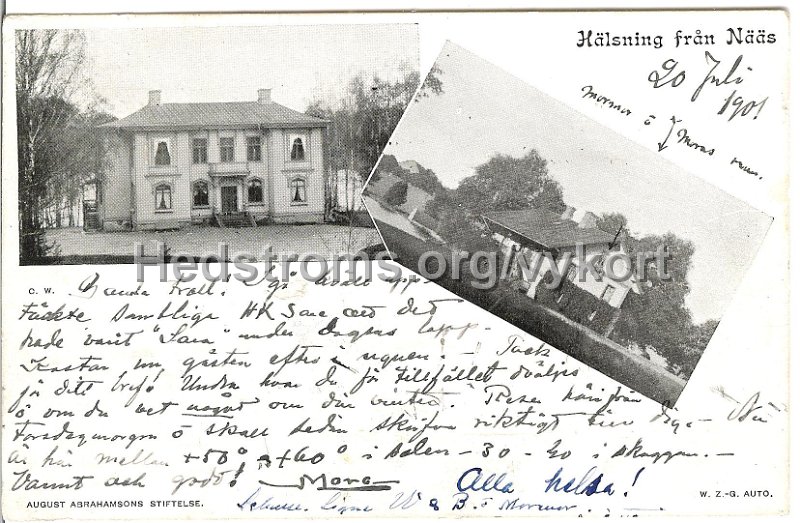 Hälsning från Nääs
20 Juli
1901
Mormor o Moras rum.
Hedstroms.org/vykort
C. W.
upp-
täckte samtliga det
hade varit "Sara" under dagens lopp-
gästen efter - Tack
för Ditt bref! Undra hvar du för tillfället dväljes
o om du vet något om din vinter. Reser härifrån
Torsdagmorgon o skall sedan skrifva riktigt - Nu
är här mellan +50° a +60° i solen - 30 - 20 i skuggan. -
Varmt och godt! - Mora
Alla helsa!
Signe W & B o Mormor.
AUGUST ABRAHAMSONS STIFTELSE.
W. Z.-G. AUTO.